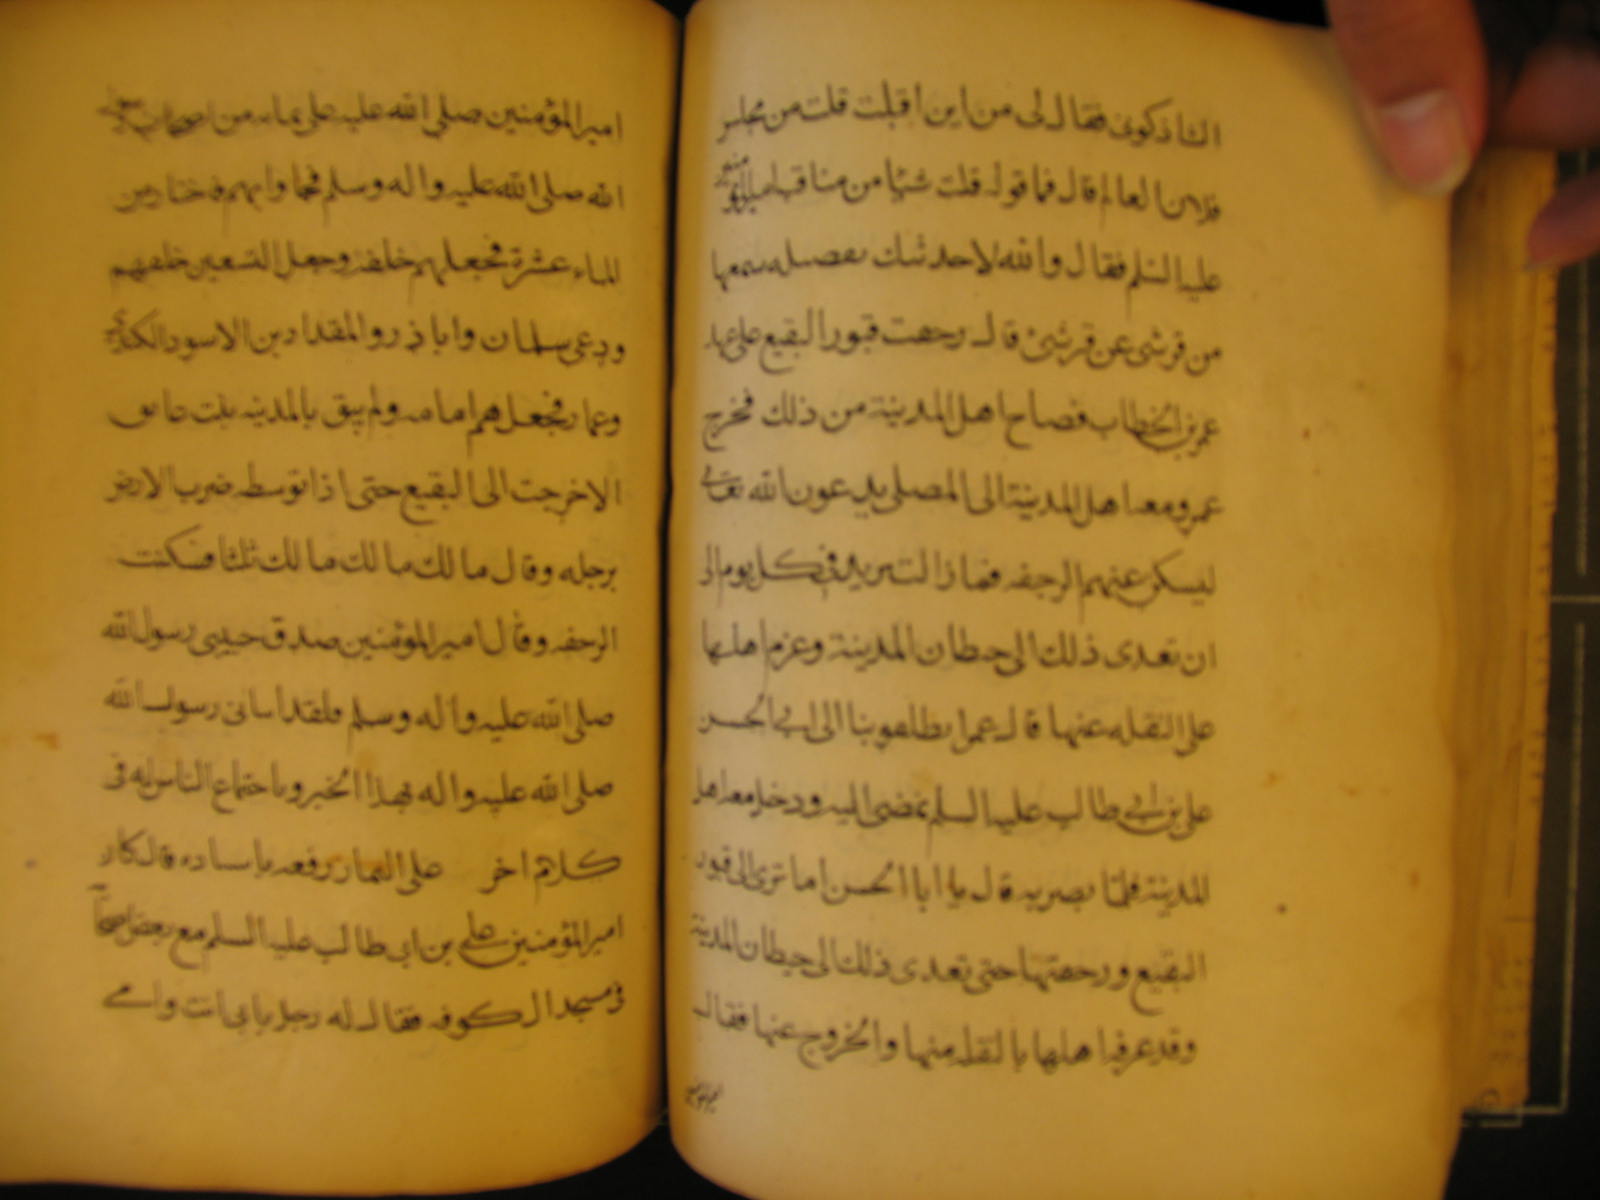 الشاذكونى فقال لى من اين اقبلت قلت من مجلس
فلان العالم قال فما قوله قلت شيئا من مناقب امير المؤمنين
عليه السلم فقال والله لاحدثنك بفضيله سمعها
من قرشى عن قرشى قال رجفت قبور البقيع على عهد
عمر بن الخطاب فصاح اهل المدينة من ذلك فخرج
عمر ومعه اهل المدينة الى المصلى يدعون الله تعالى
ليسكن عنهم الرجفه فما زالت تزيد فى كل يوم الى
ان تعدى ذلك الى حيطان المدينة وعزم اهلها
على النقله عنها قال عمر انطلقوا بنا الى ابى الحسن
على بن ابى طالب عليه السلم فمضى اليه ودخل معه اهل
المدينة فلما بصر به قال يا ابا الحسن اما ترى الى قبور
البقيع ورجفتها حتى تعدى ذلك الى حيطان المدينة
وقد عرفوا اهلها بالنقله منها والخروج عنها فقال
امير المؤمنين
امير المؤمنين صلى الله عليه على بمايه من اصحاب رسول
الله صلى الله عليه واله وسلم فجاوا بهم فاختار من
الماء عشرة فجعلهم خلفه وجعل التسعين خلفهم
ودعى سلمان وابا ذر والمقداد بن الاسود الكندى
وعمار فجعلهم امامه ولم يبق بالمدينه بنت عاتق
الا خرجت الى البقيع حتى اذا توسطه ضرب الارض
برجله وقال مالك مالك مالك ثلثا فسكنت
الرجفه وقال امير المؤمنين صدق حبيبى رسول الله
صلى الله عليه واله وسلم فلقد انبانى رسول الله
صلى الله عليه واله بهذا الخبر وباجتماع الناس له فى
كلام اخر على التمار رفعه باسناده قال كان
امير المؤمنين على بن ابى طالب عليه السلم مع بعض اصحابه
فى مسجد الكوفه فقال له رجل بابى انت وامى